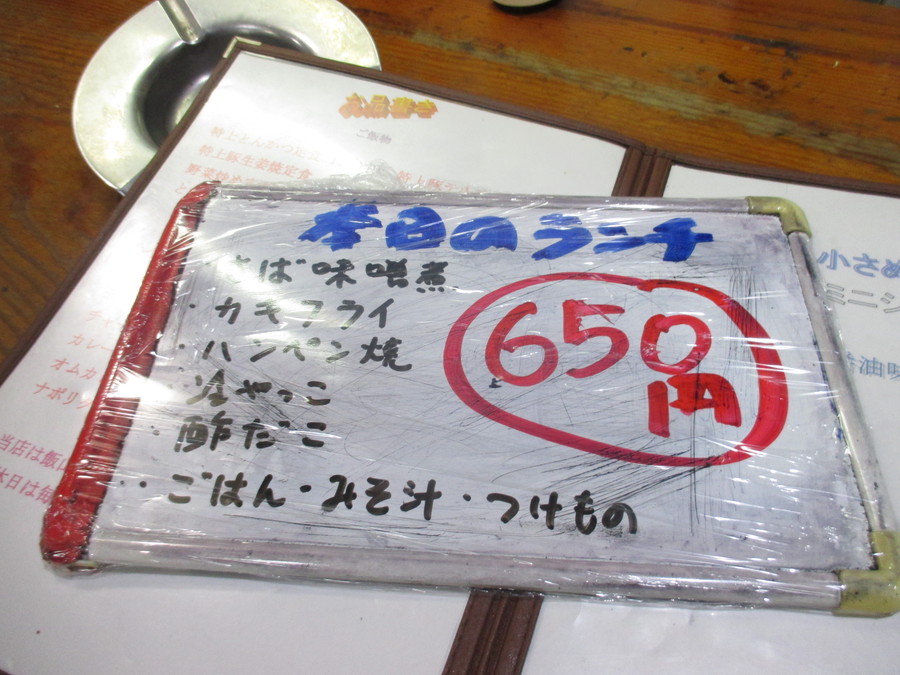 ご飯物
特上とんかつ定食
特上豚生姜焼定食
本日のランチ
さば味噌煮
・カキフライ
650円
・ハンペン焼
・冷やっこ
・酢だこ
・ごはん・みそ汁・つけもの
カレー
オムカ
ナポリ
当店は飯
休日は毎
小さめ
ミニシ
油味